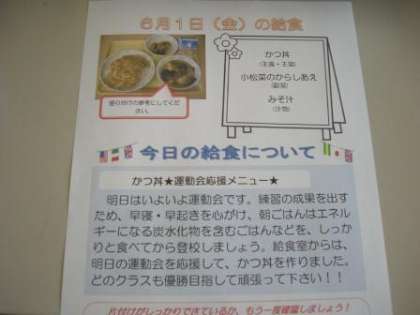 6月1日（金）の給食
かつ丼
（主食・主菜）
小松菜のからしあえ
（副菜）
みそ汁
（汁物）
盛り付けの参考にしてくだ
さい。
今日の給食について
かつ丼★運動会応援メニュー★
明日はいよいよ運動会です。練習の成果を出す
ため、早寝・早起きを心がけ、朝ごはんはエネル
ギーになる炭水化物を含むごはんなどを、しっか
りと食べてから登校しましょう。給食室からは、
明日の運動会を応援して、かつ丼を作りました。
どのクラスも優勝目指して頑張って下さい！！
片付けがしっかりできているか、もう一度確認しましょう！